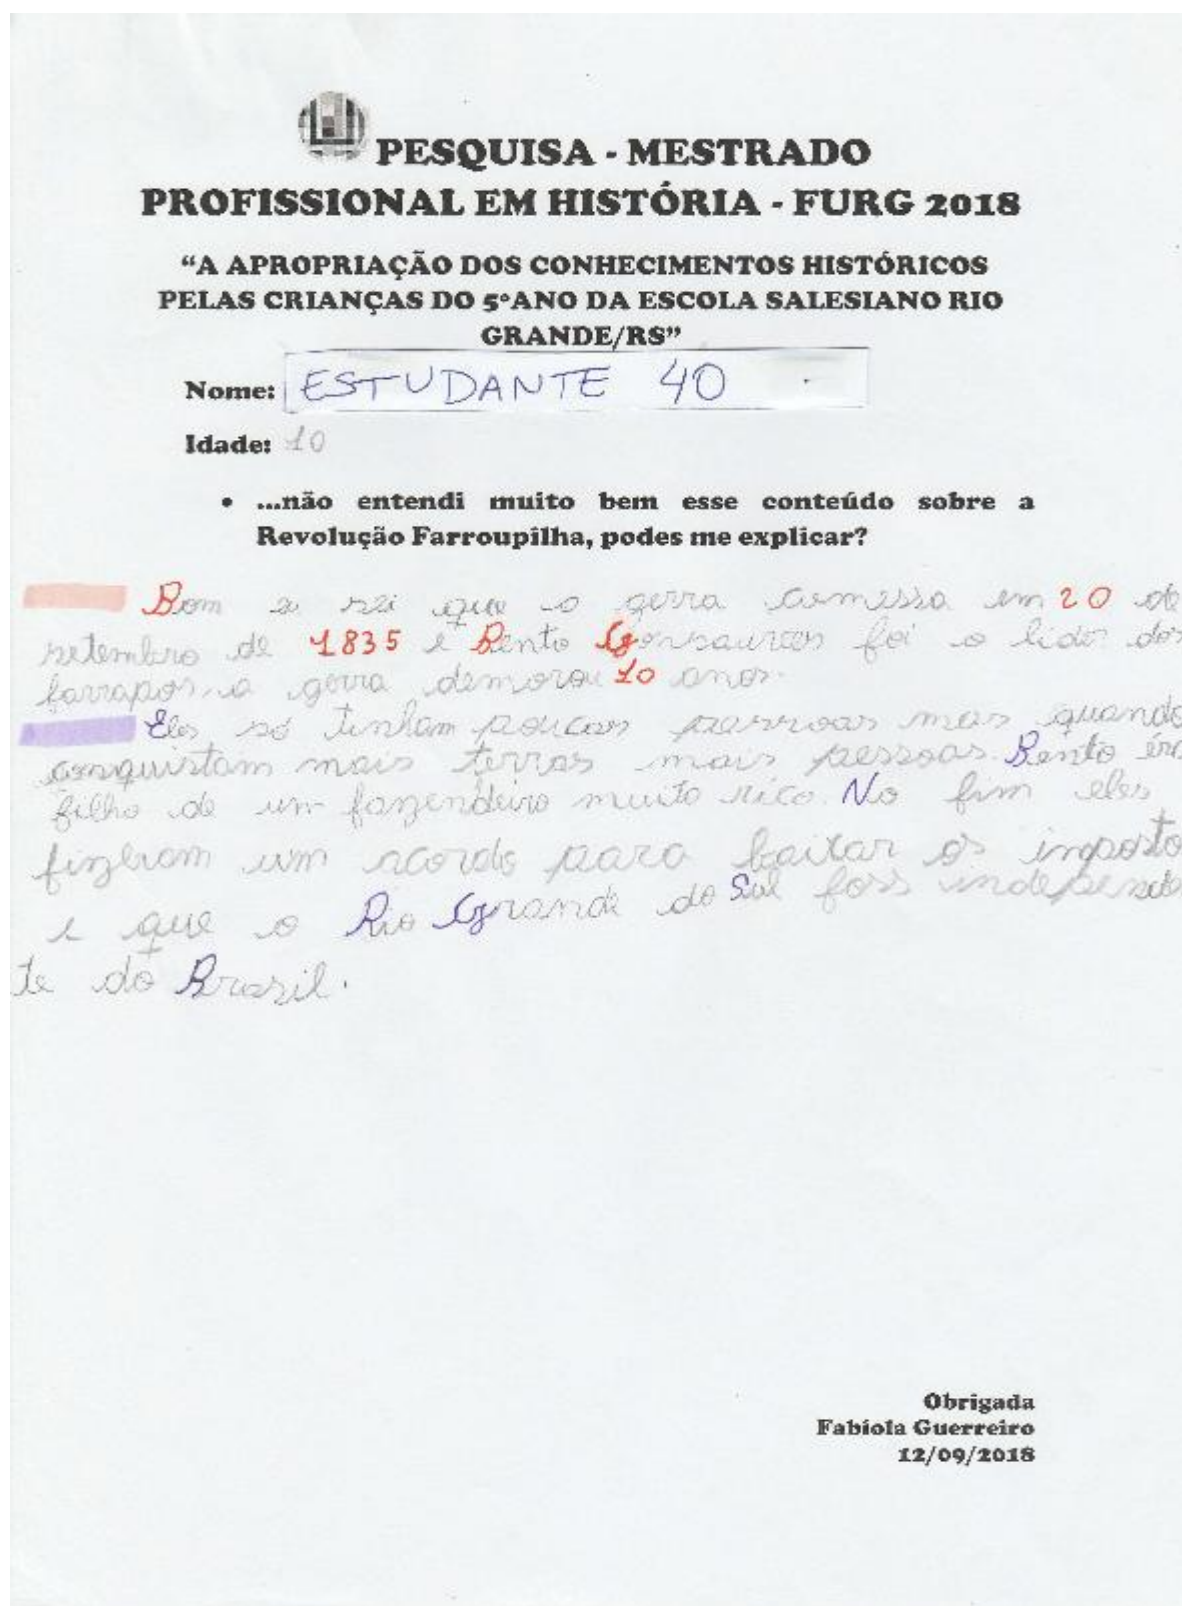 PESQUISA - MESTRADO
PROFISSIONAL EM HISTÓRIA - FURG 2018
“A APROPRIAÇÃO DOS CONHECIMENTOS HISTÓRICOS
PELAS CRIANÇAS DO 5°ANO DA ESCOLA SALESIANO RIO
GRANDE/RS”
Nome: ESTUDANTE 40
Idade: 10
• ...não entendi muito bem esse conteúdo sobre a
Revolução Farroupilha, podes me explicar?
Bom sei que a gerra comessa em 20 de
setembro de 1835 e Bento foi o lider dos
farrapos, a gerra demorou 10 anos.
Eles só tinham poucas pessoas mas quando
conquistam mais terras mais pessoas. Bento éra
filho de um fazendeiro muito rico. No fim eles
fizeram um acordo para baixar os imposto
e que o Rio Grande do Sul foss independen
te do Brasil.
Obrigada
Fabíola Guerreiro
12/09/2018